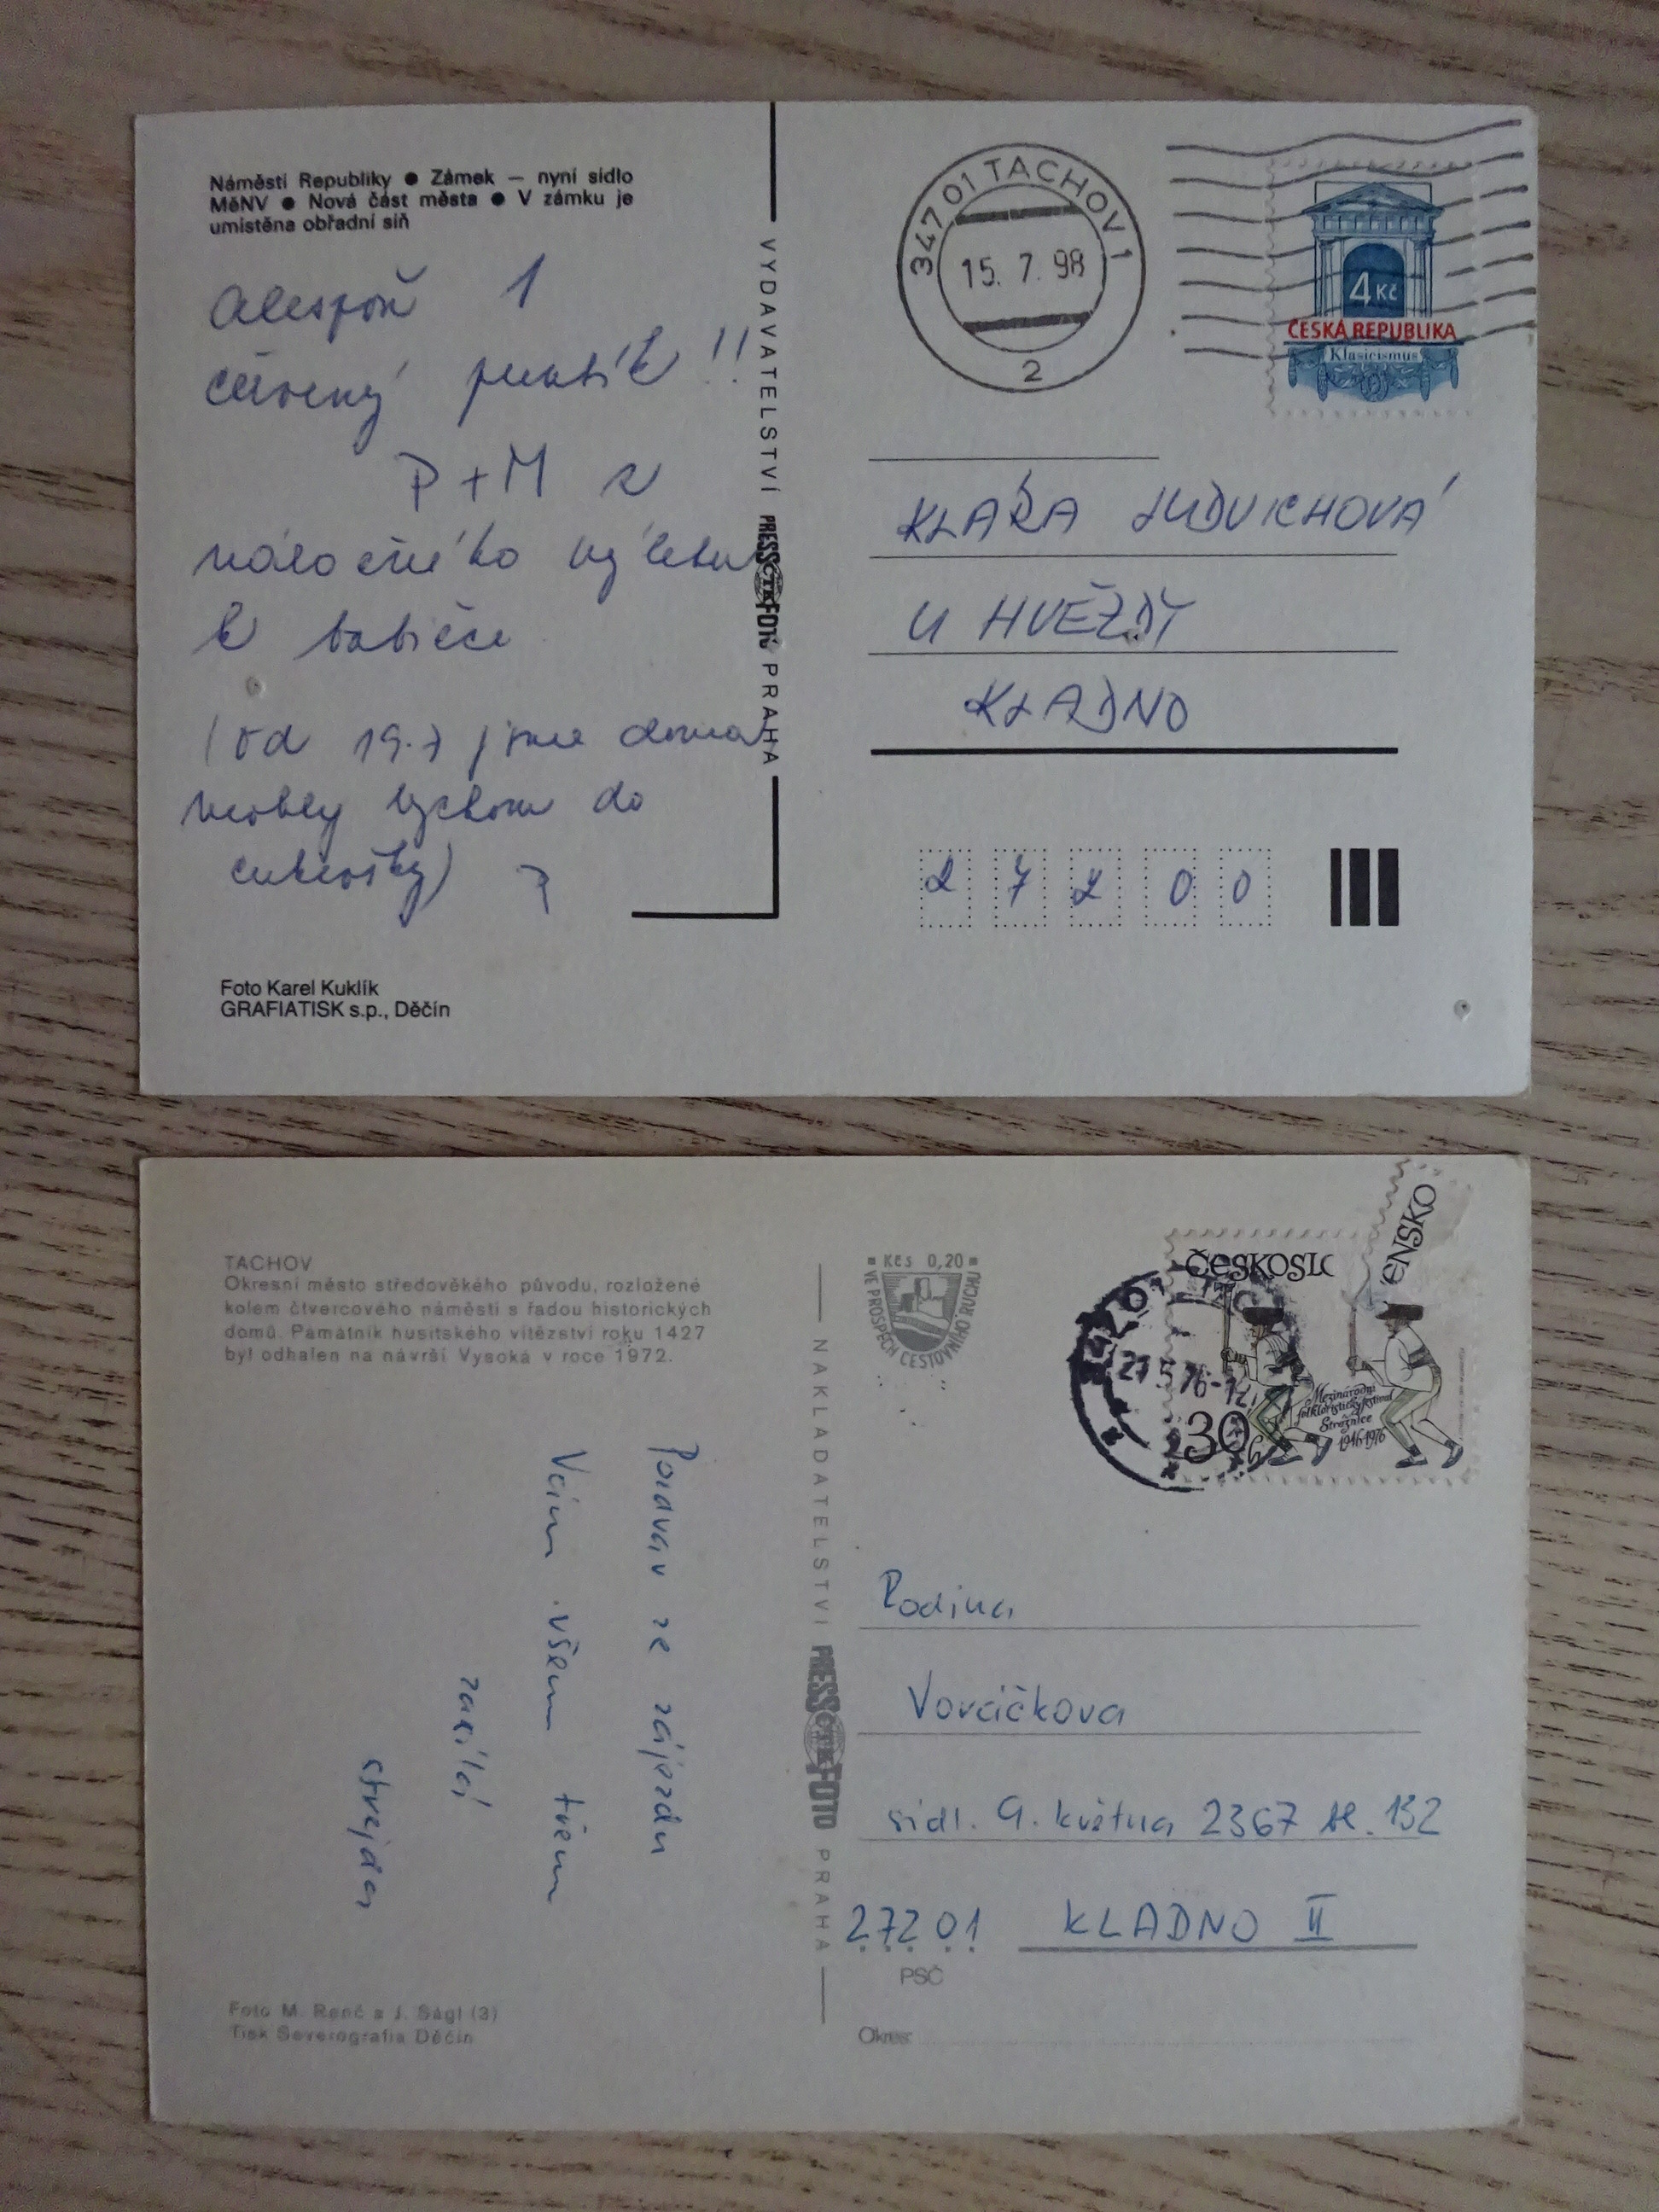 Náměstí Republiky ● Zámek — nyní sídlo
MěNV ● Nová část města ● V zámku je
umístěna obřadní síň
Alespoň 1
červený puntík !!
P + M z
náročného výletu
k babičce
(od 19.7 jsme doma
mohly bychom do
cukrárky) ?
Foto Karel Kuklík
GRAFIATISK s.p., Děčín
VYDAVATELSTVÍ PRESSFOTO PRAHA
ČTK
347 01 TACHOV 1
15. 7. 98
2
4 Kč
ČESKÁ REPUBLIKA
Klasicismus
KLÁRA LUDVICHOVÁ
U HVĚZDY
KLADNO
272 00
TACHOV
Okresní město středověkého původu, rozložené
kolem čtvercového náměstí s řadou historických
domů. Památník husitského vítězství roku 1427
byl odhalen na návrší Vysoká v roce 1972.
Pozdrav ze zájezdu
Vám všem třem
zasílá
strejda
Foto M. Renč a J. Ságl (3)
Tisk Severografia Děčín
NAKLADATELSTVÍ PRESSFOTO PRAHA
ČTK
Kčs 0,20
VE PROSPĚCH CESTOVNÍHO RUCHU
ČESKOSLO
ENSKO
27.5.76-12
30
Mezinárodní
folkloristický festival
Strážnice
1946 1976
Rodina
Voráčkova
sídl. 9. května 2367 bl. 132
27201 KLADNO II
PSČ
Okres